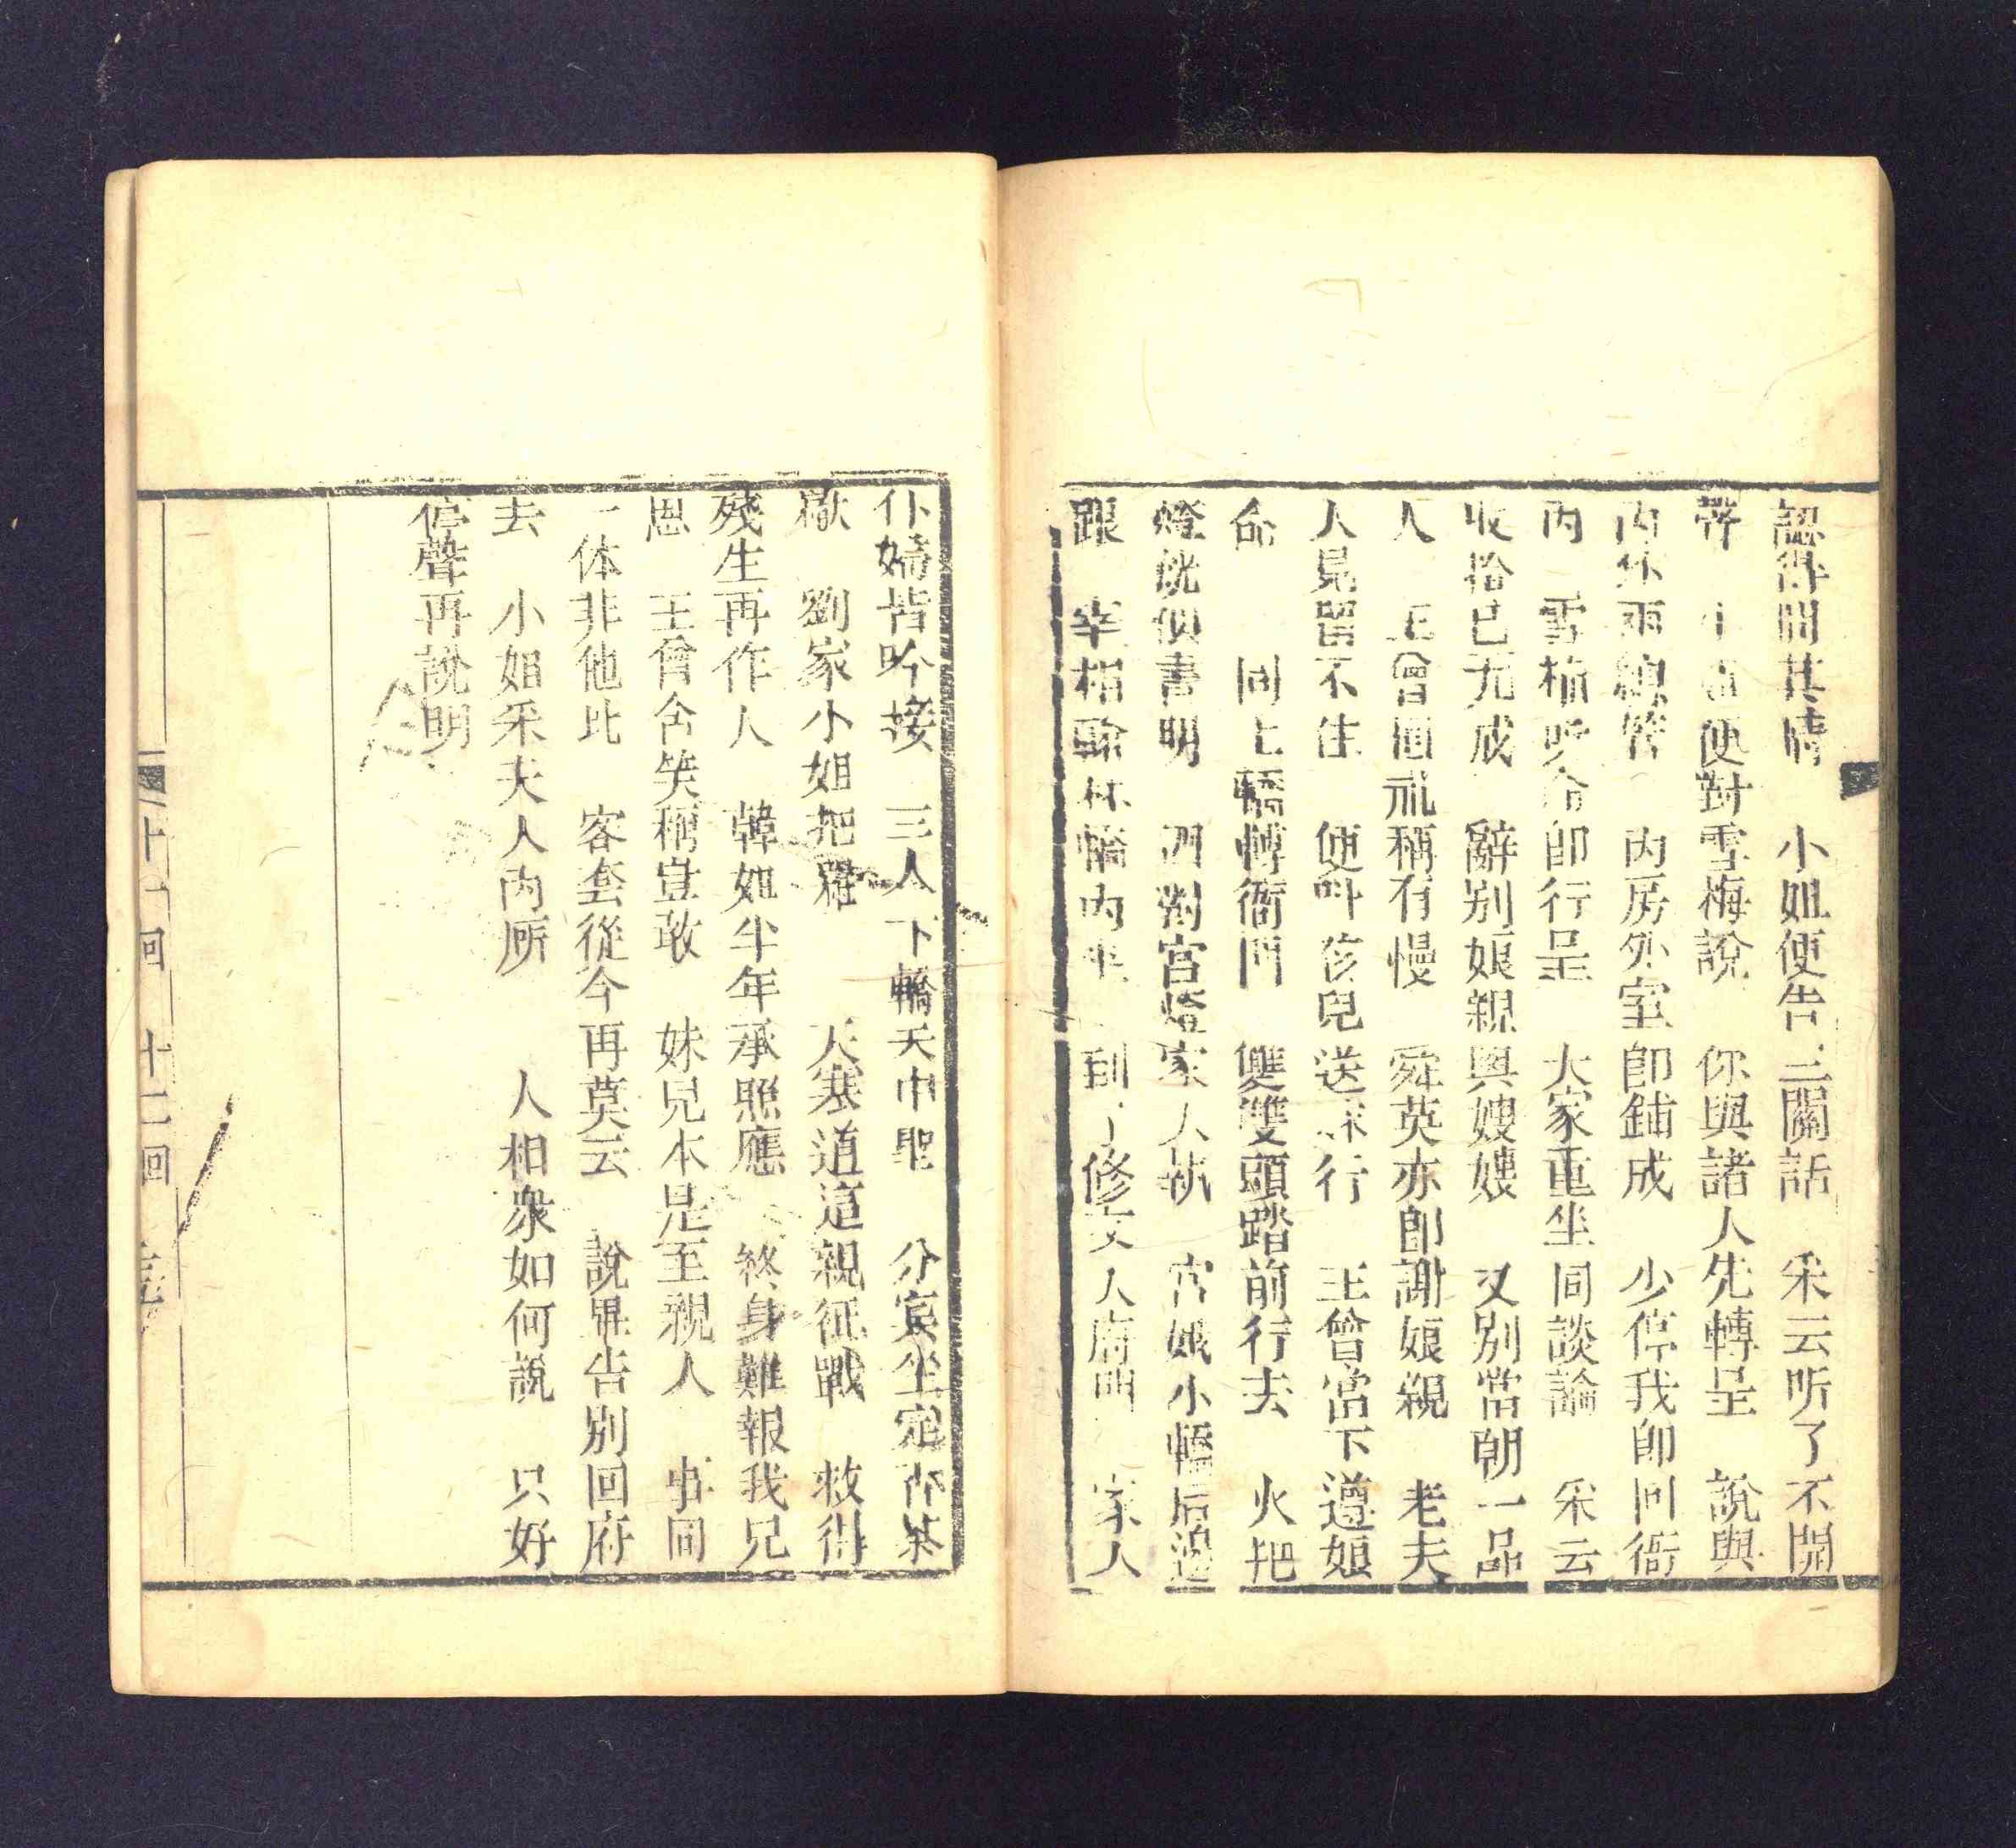 認得問其情 小姐便告三關話 采云听了不開
聲 小姐便對雪梅說 你與諸人先轉呈 說與
內外兩總管 內房外室即鋪成 少停我即回衙
內 雪梅听命即行呈 大家重坐同談論 采云
收拾已完成 辭別娘親與嫂嫂 又別當朝一品
人 王曾回礼稱有慢 舜英亦即謝娘親 老夫
人見留不住 便叫孩兒送 行 王曾當下遵娘
命 同上轎轉衙門 雙雙頭踏前行去 火把
燈 書明 四對宮燈家人執 宮娥小轎后邊
跟 宰相 轎內坐 到了修文人府門 家人
仆婦皆吟接 三人下轎天中 分賓坐定 茶
獻 劉家小姐把 天塞道這親征戰 救得
殘生再作人 韓如半年承照應 終身難報我兄
恩 王曾含笑稱豈敢 妹兄本是至親人 事同
一体非他比 客套從今再莫云 說畢告別回府
去 小姐采夫人內廂 人相衆如何說 只好
停聲再說明
十一回 十二回